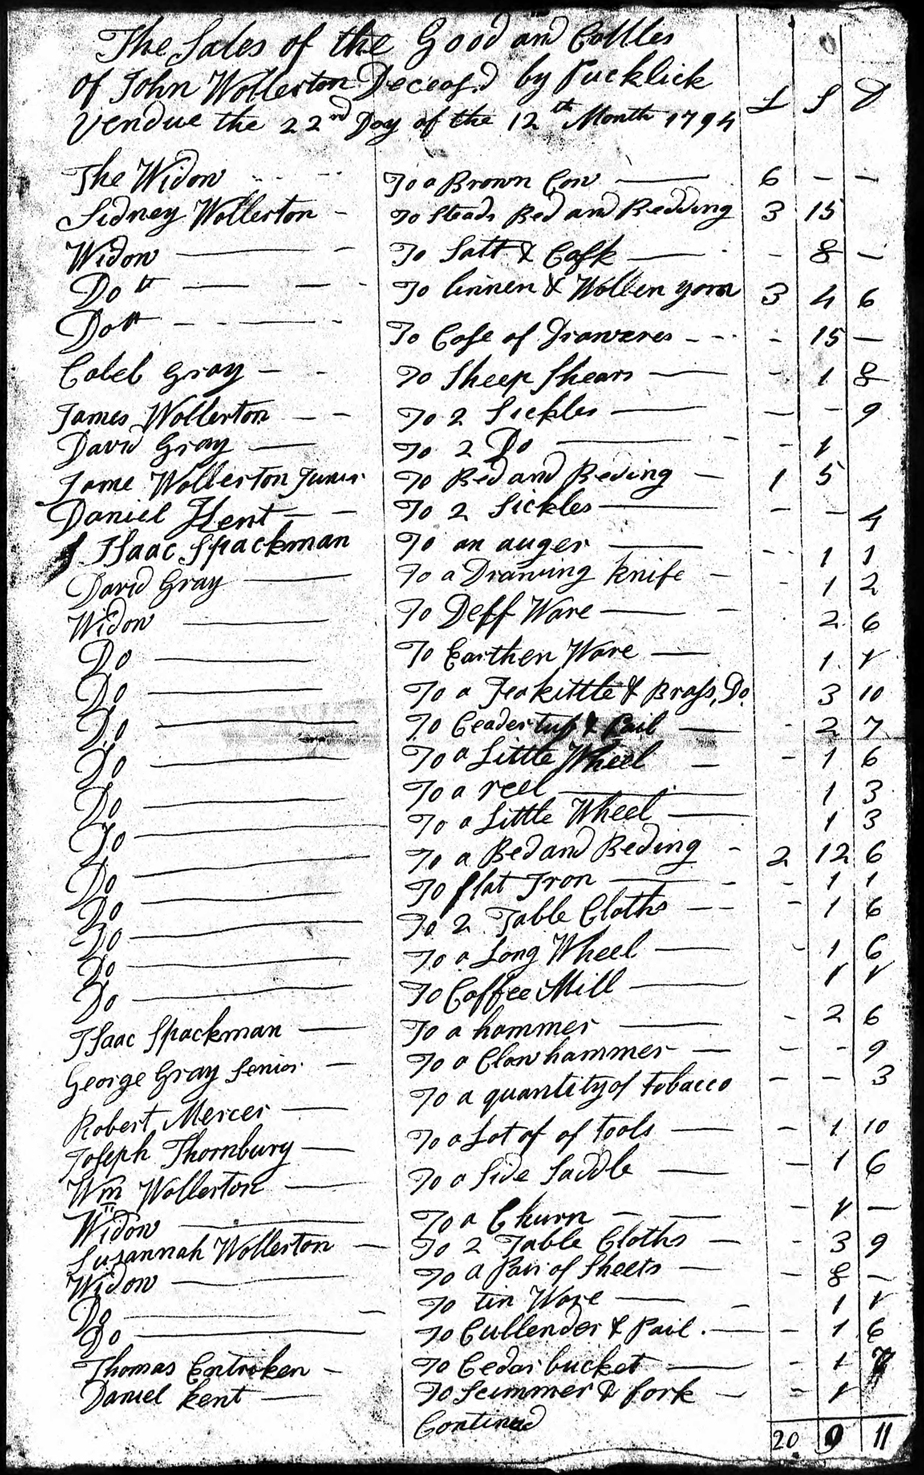 The Sales of the Good and Cattles
of John Wollerton Deceas.d by Pucklick
Vendue the 22nd Day of the 12th Month 1794
£ S D
The Widow To a Brown Cow 6 - -
Sidney Wollerton - To Steads Bed and Bedding 3 15
Widow - To Salt & Cask - 8 -
Do tt To linnen & Wollen yorn 3 4 6
Do tt To Case of Draweres - 15 -
Caleb Gray - To Sheep Shears - 1 8
James Wollerton To 2 Sickles - - 9
David Gray To 2 Do - 1
Jame Wollerton Junir To Bed and Beding 1 5
Daniel Kent To 2 Sickles - - 4
Isaac Spackman To an auger - 1 1
David Gray To a Drawing knife - 1 2
Widow To Deff Ware - 2 6
Do To Earthen Ware 1
Do To a Teakittle & Brass, Do. 3 10
Do To Ceader tub & Pail - 2 7
Do To a Little Wheel - 1 6
Do To a reel 1 3
Do To a Little Wheel 1 3
Do To a Bed and Beding - 2 12 6
Do To flat Iron - 1 1
Do To 2 Table Cloths - 1 6
Do To a Long Wheel - 1 6
Do To Coffee Mill
Isaac Spackman To a hammer - 2 6
George Gray Senior To a Claw hammer - - 9
Robert Mercer To a quantity of tobacco - - 3
Joseph Thornbury To a Lot of of tools - 1 10
Wm Wollerton To a Side Saddle - 1 6
Widow To a Churn - -
Susannah Wollerton To 2 Table Cloths - 3 9
Widow To a Pair of Sheets - 8 -
Do To tin Ware - 1
Do To Cullender & Pail. - 1 6
Thomas Entroken - To Cedar bucket - 1
Daniel Kent To Scimmer & fork -
Contined
20 9 11